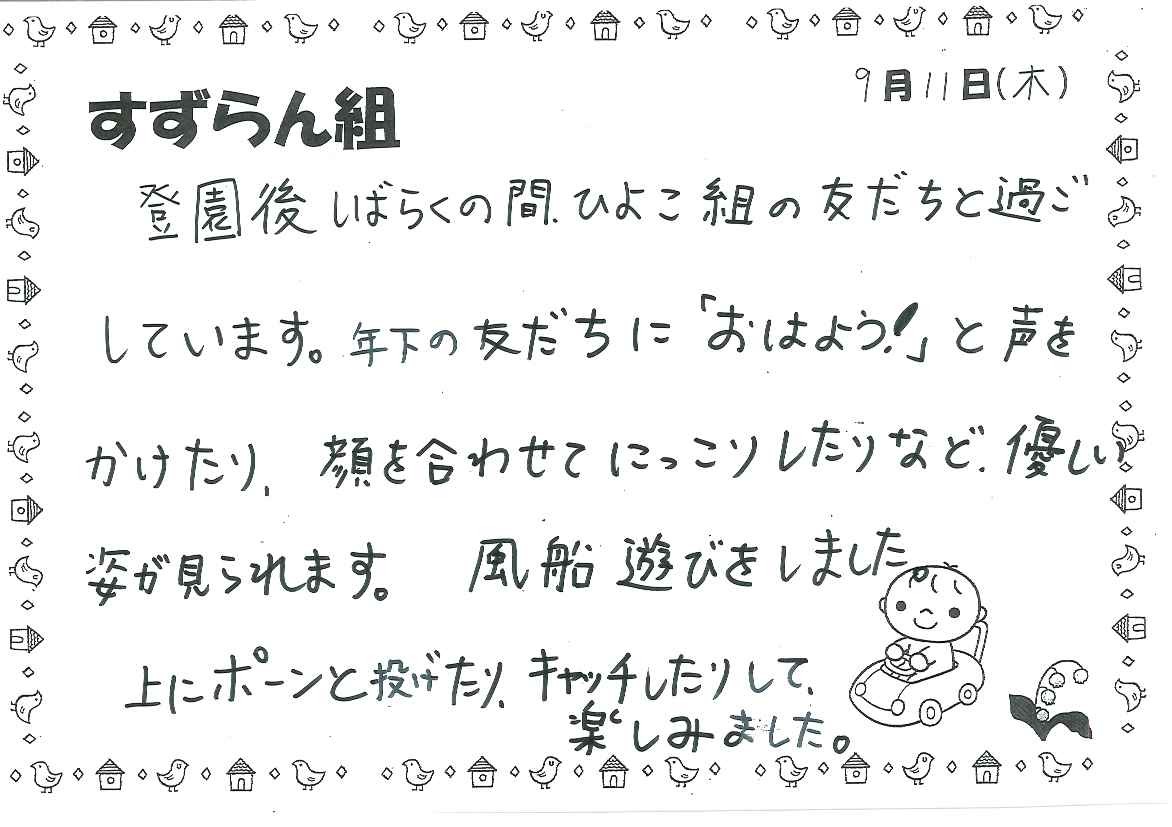 9月11日(木)
すずらん組
登園後しばらくの間、ひよこ組の友だちと過ご
しています。年下の友だちに「おはよう!」と声を
かけたり、顔を合わせてにっこりしたりなど、優しい
姿が見られます。 風船遊びをしました。
上にポーンと投げたり、キャッチしたりして、
楽しみました。